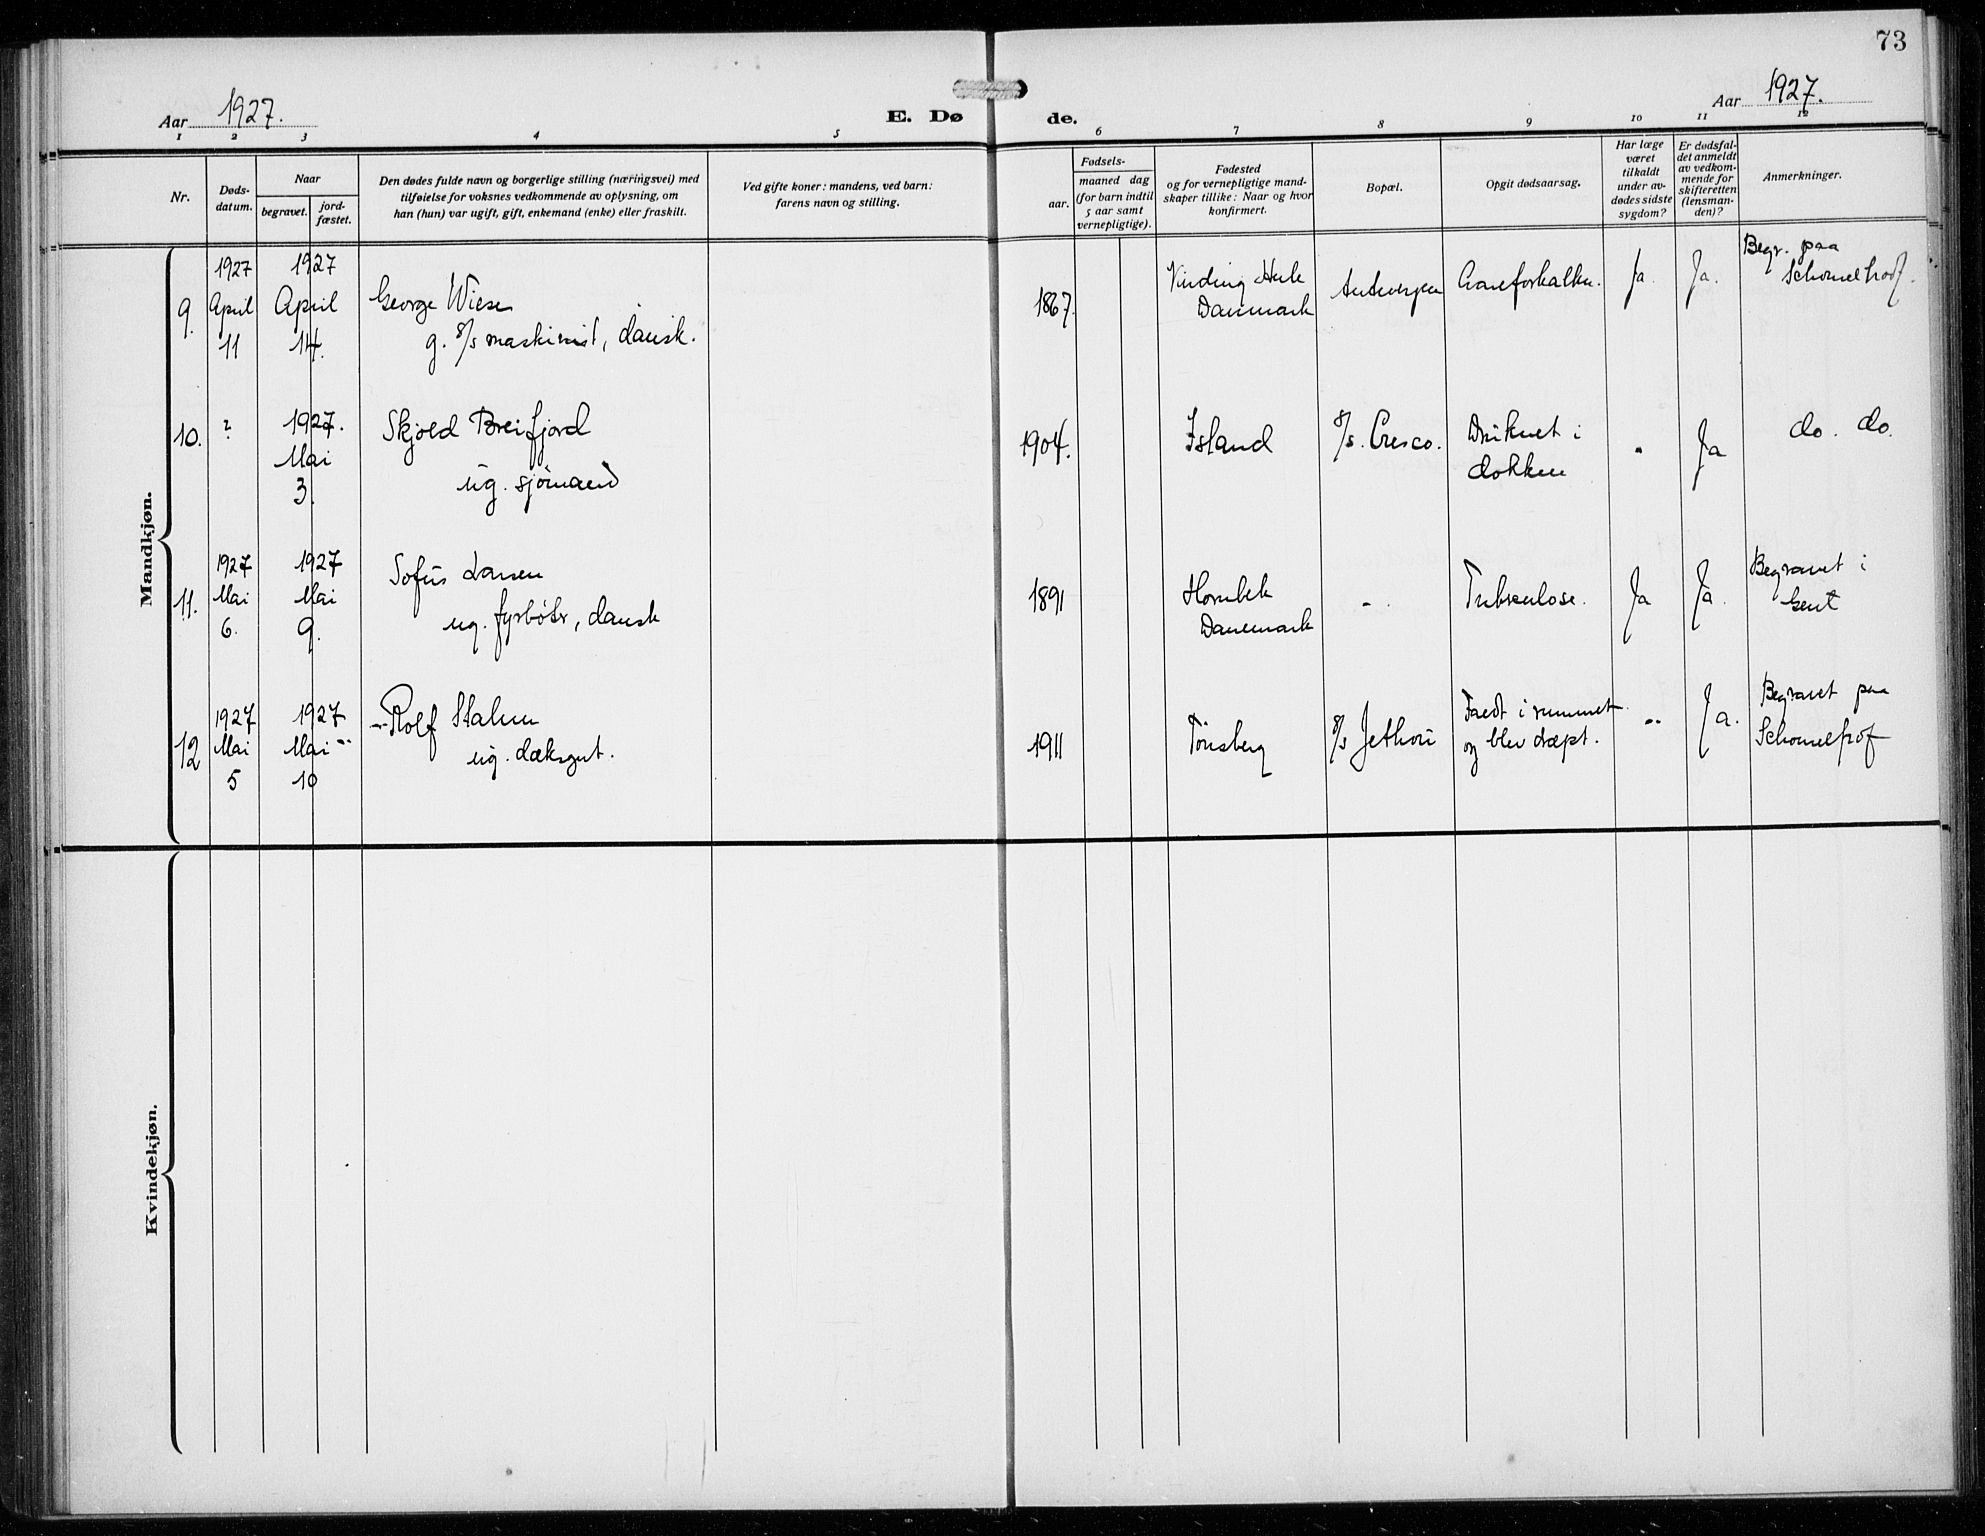 73
Aar 1927.
E. Døde.
Aar 1927.
1 2 3 4 5 6 7 8 9 10 11 12
Nr.
Døds-
datum.
Naar
begravet.
jord-
fæstet.
Den dødes fulde navn og borgerlige stilling (næringsvei) med
tilføielse for voksnes vedkommende av oplysning, om
han (hun) var ugift, gift, enkemand (enke) eller fraskilt.
Ved gifte koner: mandens, ved barn:
farens navn og stilling.
Fødsels-
aar.
maaned dag
(for barn indtil
5 aar samt
vernepligtige).
Fødested
og for vernepligtige mand-
skaper tillike: Naar og hvor
konfirmert.
Bopæl.
Opgit dødsaarsag.
Har læge
været
tilkaldt
under av-
dødes sidste
sygdom?
Er dødsfal-
det anmeldt
av vedkom-
mende for
skifteretten
(lensman-
den)?
Anmerkninger.
Mandkjøn.
9.
1927
April
11
1927
April
14.
George Wiese
g. s/s maskinist, dansk.
1867.
Vinding
Danmark
Antwerpen
Aareforkalkn.
Ja.
Ja.
Begr. paa
Schonselhoof.
10.
?
1927.
Mai
3.
Skjold Breifjord
ug. sjømand
1904.
Island
s/s. Cresco.
Druknet i
dokken
"
Ja
do. do.
11.
1927
Mai
6.
1927
Mai
9.
Sofus Larsen
ug. fyrbøter, dansk
1891
Hornbek
Danemark
-
Tuberkulose.
Ja
Ja.
Begravet i
Gent
12
1927
Mai
5
1927
Mai
10
Rolf
ug. dæksgut.
1911
Tønsberg
s/s Jethou
Faldt i rummet
og blev dræpt.
"
Ja.
Begravet paa
Schonselhof
Kvindekjøn.